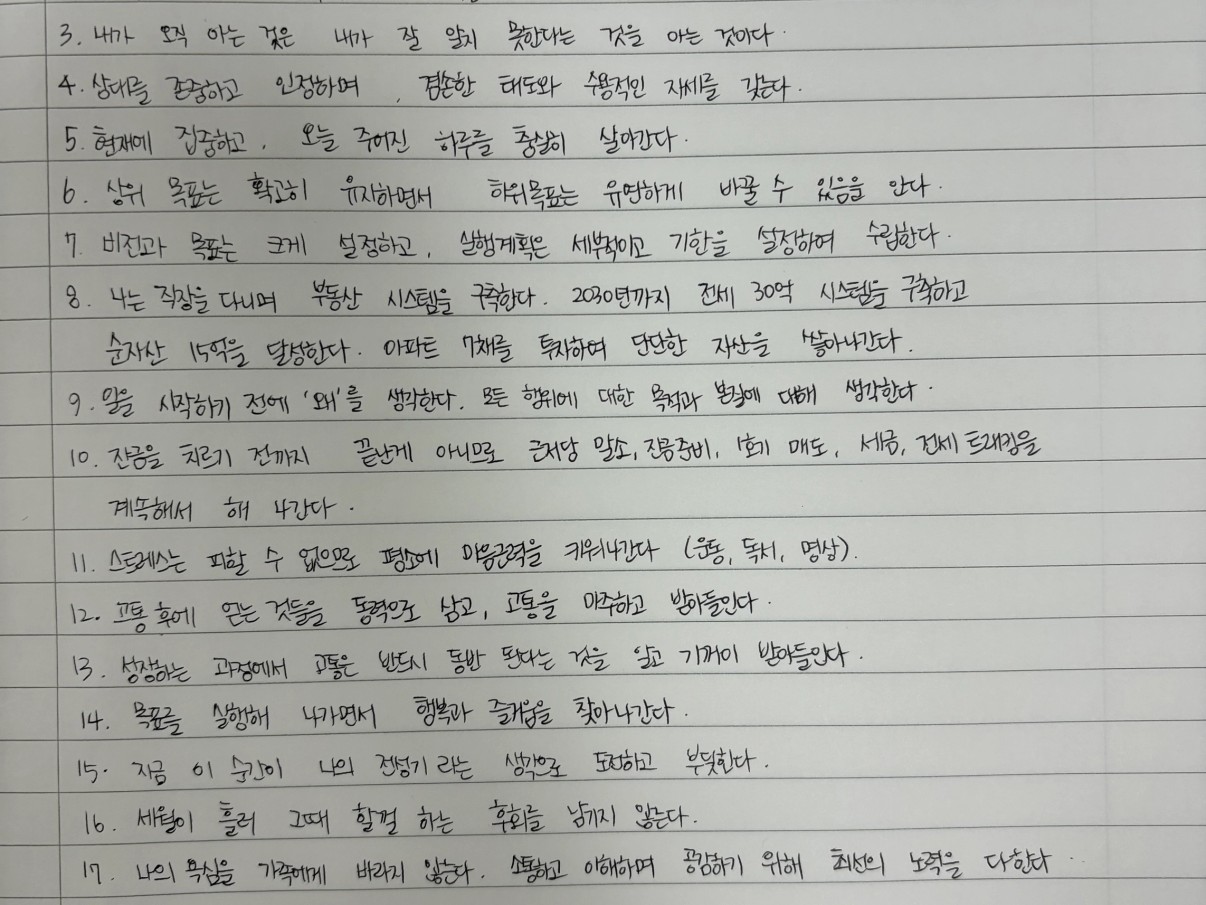 3. 내가 오직 아는 것은 내가 잘 알지 못한다는 것을 아는 것이다.
4. 상대를 존중하고 인정하며, 겸손한 태도와 수용적인 자세를 갖는다.
5. 현재에 집중하고, 오늘 주어진 하루를 충실히 살아간다.
6. 상위 목표는 확고히 유지하면서 하위목표는 유연하게 바꿀 수 있음을 안다.
7. 비전과 목표는 크게 설정하고, 실행계획은 세부적이고 기한을 설정하여 수립한다.
8. 나는 직장을 다니며 부동산 시스템을 구축한다. 2030년까지 전세 30억 시스템을 구축하고
순자산 15억을 달성한다. 아파트 7채를 투자하여 단단한 자산을 쌓아나간다.
9. 일을 시작하기 전에 '왜'를 생각한다. 모든 행위에 대한 목적과 본질에 대해 생각한다.
10. 잔금을 치르기 전까지 끝난게 아니므로 근저당 말소, 잔금준비, 1호기 매도, 세금, 전세 트래킹을
계속해서 해 나간다.
11. 스트레스는 피할 수 없으므로 평소에 마음근력을 키워나간다 (운동, 독서, 명상).
12. 고통 후에 얻는 것들을 동력으로 삼고, 고통을 마주하고 받아들인다.
13. 성장하는 과정에서 고통은 반드시 동반 된다는 것을 알고 기꺼이 받아들인다.
14. 목표를 실행해 나가면서 행복과 즐거움을 찾아나간다.
15. 지금 이 순간이 나의 전성기 라는 생각으로 도전하고 부딪한다.
16. 세월이 흘러 그때 할껄 하는 후회를 남기지 않는다.
17. 나의 욕심을 가족에게 바라지 않는다. 소통하고 이해하며 공감하기 위해 최선의 노력을 다한다.